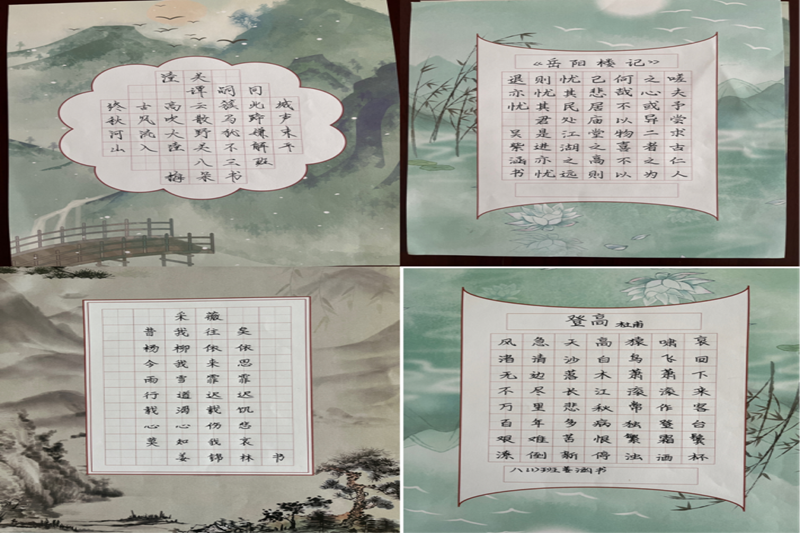 潼关
谭嗣同
终古高云簇此城
秋风吹散马蹄声
河流大野犹嫌束
山入潼关不解平
八三班
书
《岳阳楼记》
嗟夫予尝求古仁人
之心或异二者之为
何哉不以物喜不以
己悲居庙堂之高则
忧其民处江湖之远
则忧其君是进亦忧
退亦忧 吴紫涵书
采薇
昔我往矣
杨柳依依
今我来思
雨雪霏霏
行道迟迟
载渴载饥
心伤悲
莫知我哀
姜锦林书
登高 杜甫
风急天高猿啸哀
渚清沙白鸟飞回
无边落木萧萧下
不尽长江滚滚来
万里悲秋常作客
百年多病独登台
艰难苦恨繁霜鬓
潦倒新停浊酒杯
八(1)班姜涵书